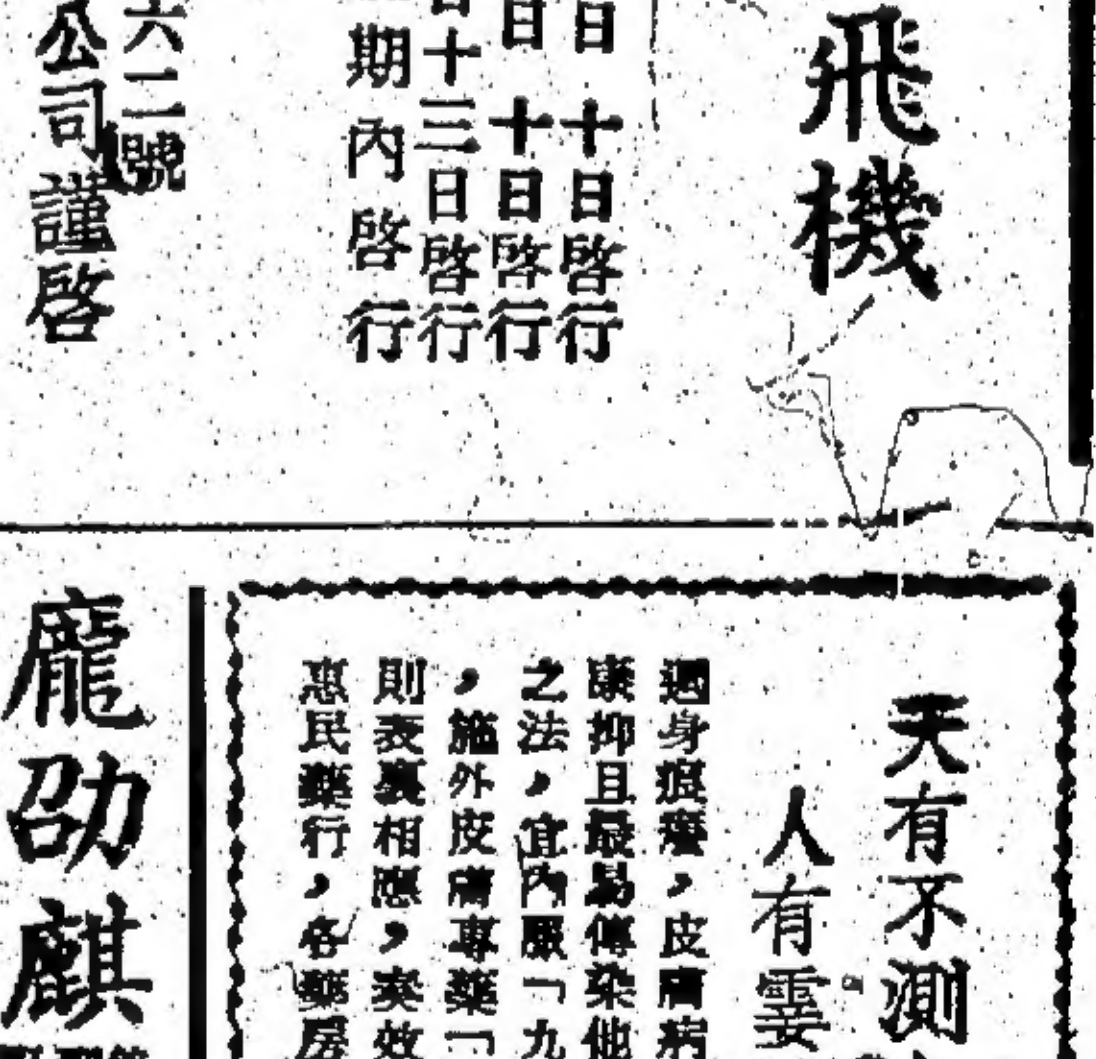 飛機
日 十日啓行
日 十日啓行
十三日啓行
期內啓行
六二號
公司謹啓
天有不測
人有霎
遍身痕癢，皮膚病
康抑且最易傳染他
之法，宜內服「九
，施外皮膚專藥「
則表裏相應，奏效
惠民藥行，各藥房
龐劭麒